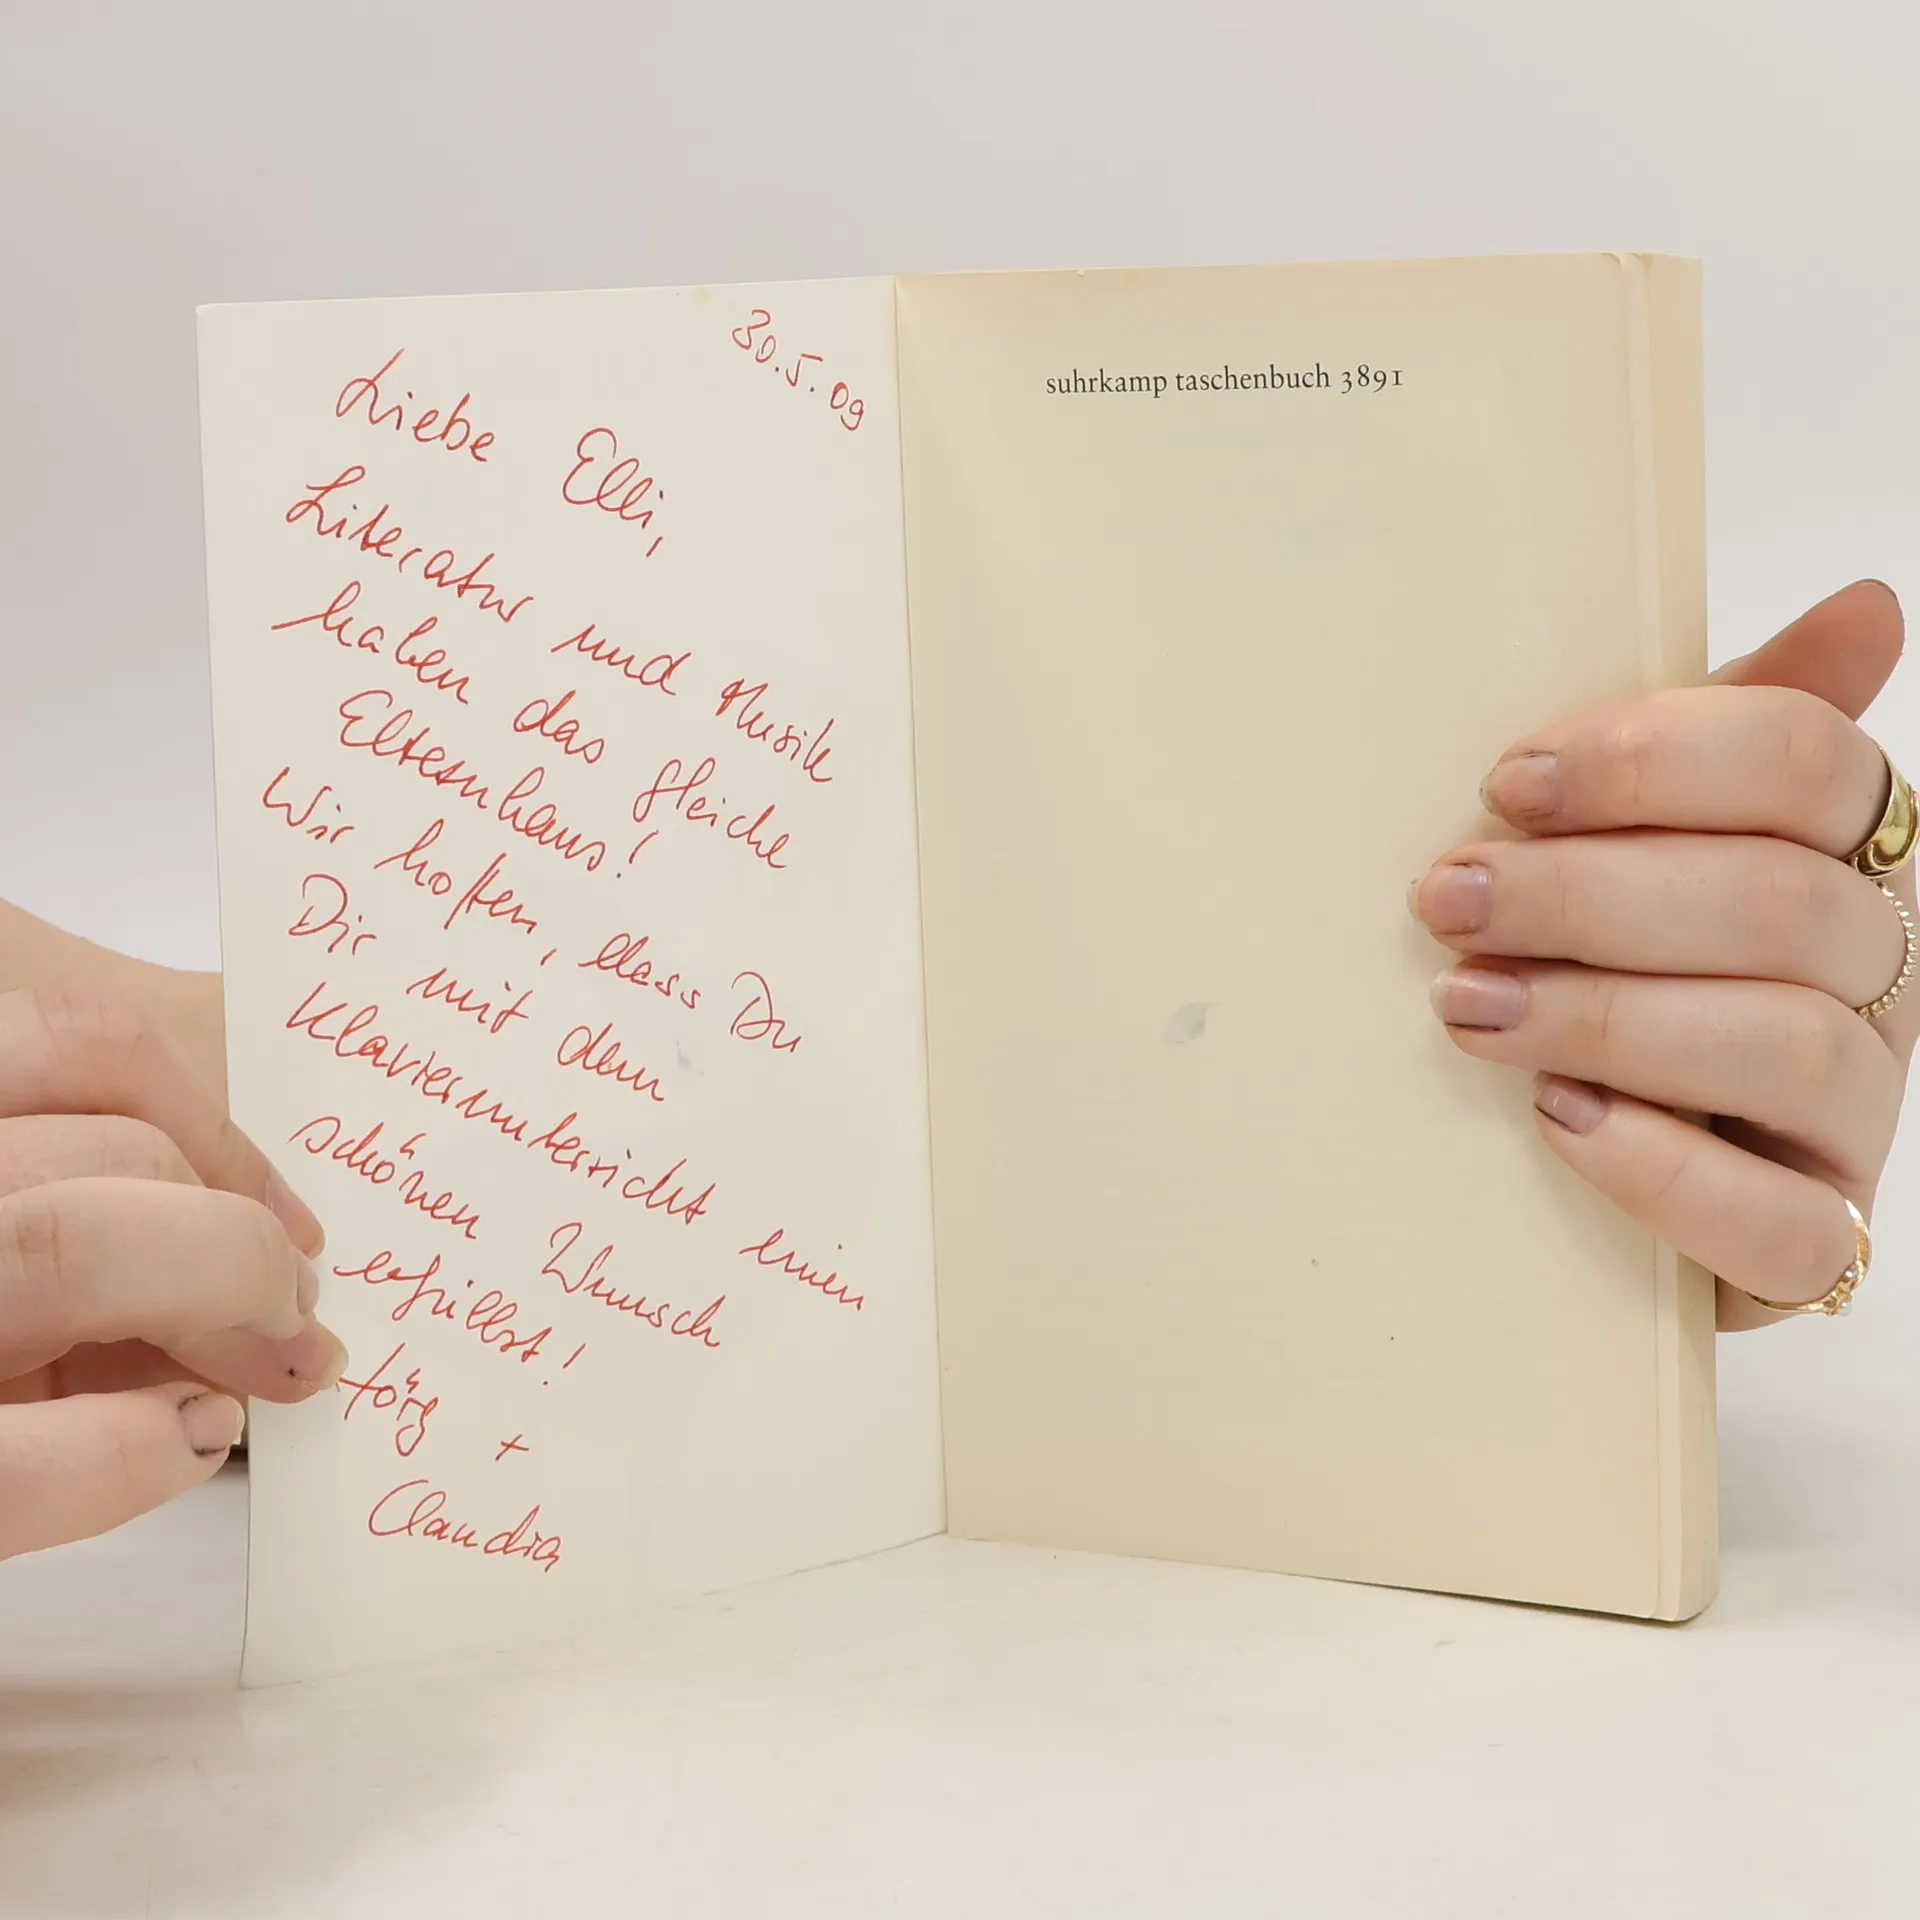 30.5.09
Liebe Elli,
Literatur und Musik
haben das gleiche
Elternhaus!
Wir hoffen, dass Du
Dir mit dem
Klavierunterricht einen
schönen Wunsch
erfüllst!
Jörg +
Claudia
suhrkamp taschenbuch 3891